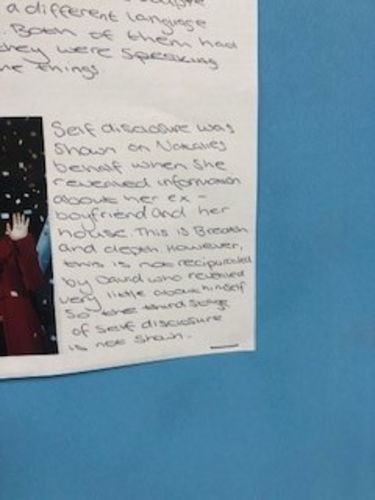 a different language
. Both of them had
they were speaking
things.
Self disclosure was
shown on Natalies
behalf when she
revealed information
about her ex -
boyfriend and her
house. This is Breath
and depth. However,
this is not reciprocated
by David who revealed
very little about himself
so the third stage
of self disclosure
is not shown.